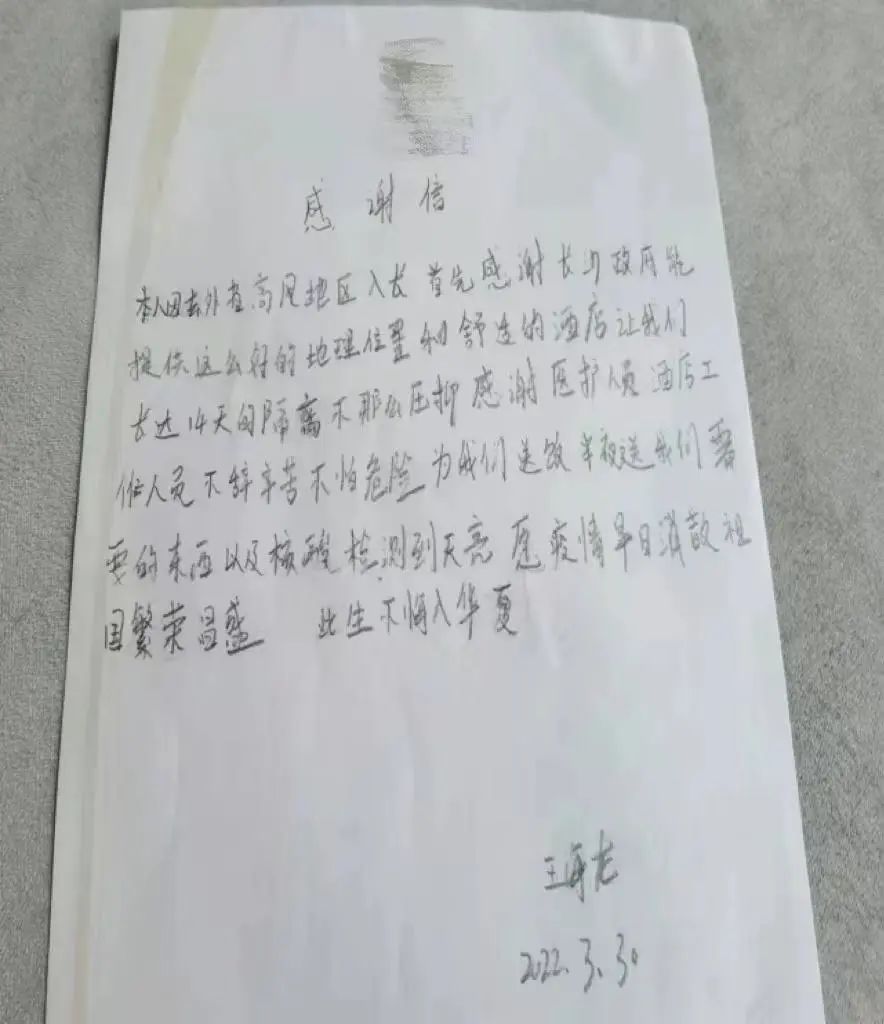 感谢信
本人因去外省高风地区入长 首先感谢长沙政府能
提供这么好的地理位置和舒适的酒店让我们
长达14天的隔离不那么压抑 感谢医护人员 酒店工
作人员 不辞辛苦不怕危险 为我们送饭 半夜送我们需
要的东西以及核酸检测到天亮 愿疫情早日消散祖
国繁荣昌盛 此生不悔入华夏
王海龙
2022.3.30